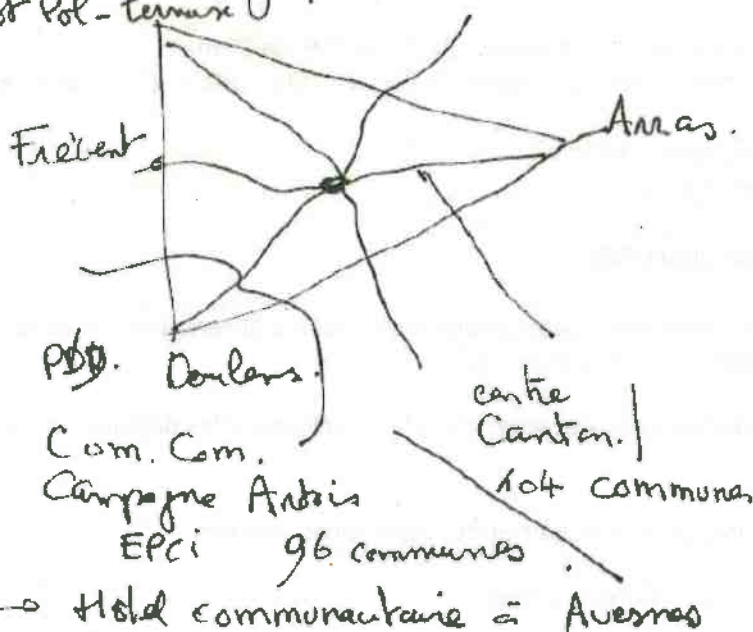 St Pol - Ternoise
Arras.
Frévent
PDD. Doulens.
centre
Canton.
Com. Com.
104 communes
Campagne Artois
EPCi 96 communes
→ Hôtel communautaire à Avesnes